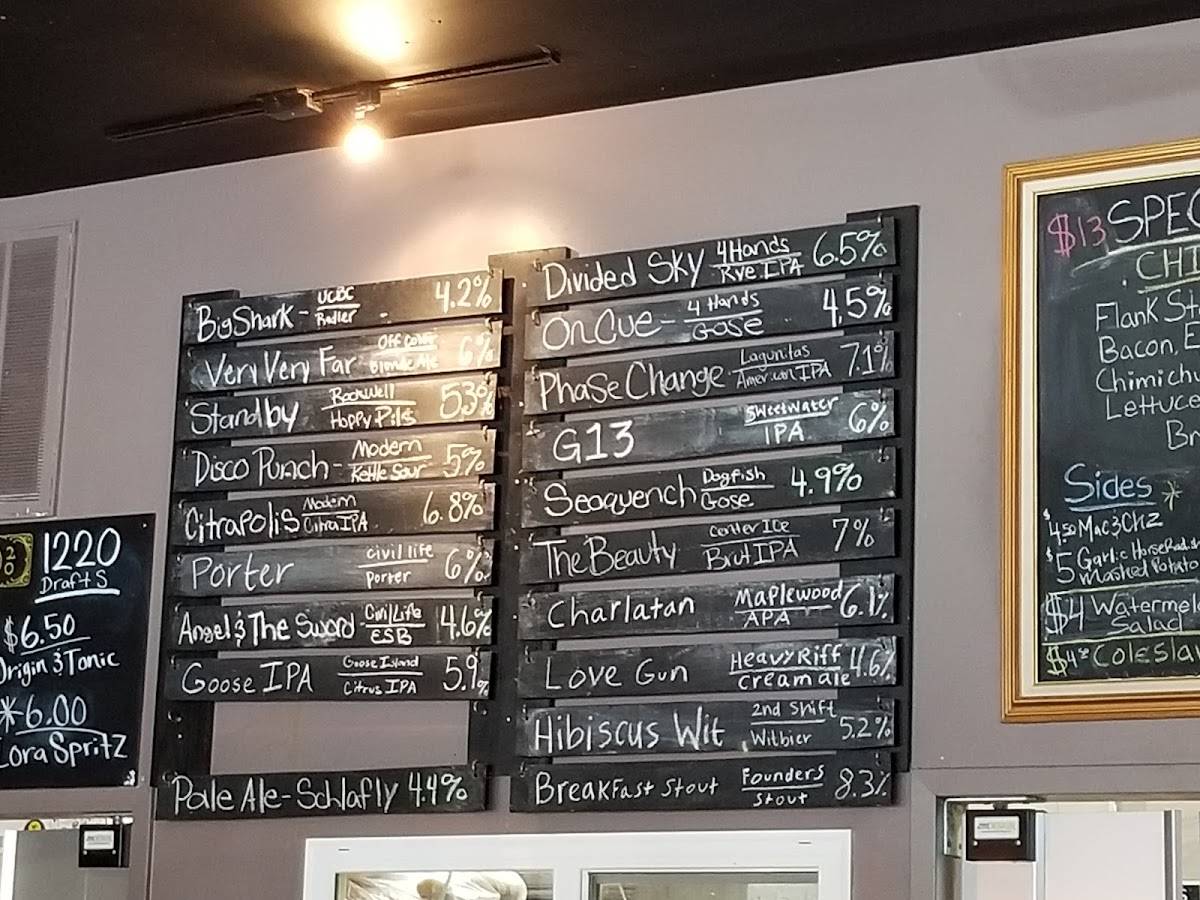 BigShark - UCBC Radler 4.2%
Very Very Far Off Color Blonde Ale 6%
Standby Rockwell Hoppy Pils 5.3%
Disco Punch - Modern Kettle Sour 5%
Citrapolis Modern Citra IPA 6.8%
Porter Civil life Porter 6%
Angel & The Sword Civil Life ESB 4.6%
Goose IPA Goose Island Citrus IPA 5.9%
Pale Ale - Schlafly 4.4%
Divided Sky 4 Hands Rye IPA 6.5%
On Cue - 4 Hands Gose 4.5%
Phase Change Lagunitas American IPA 7.1%
G13 Sweetwater IPA 6%
Seaquench Dogfish Gose 4.9%
The Beauty Center Ice Brut IPA 7%
Charlatan Maplewood APA 6.1%
Love Gun Heavy Riff Cream ale 4.6%
Hibiscus Wit 2nd Shift Witbier 5.2%
Breakfast Stout Founders Stout 8.3%
1220
Drafts
$6.50
Origin & Tonic
*6.00
Lora Spritz
$13 SPEC
CHI
Flank St
Bacon, E
Chimichu
Lettuce
Br
Sides *
$4.50 Mac & Chz
$5 Garlic Horseradish
Mashed Potato
$4 Watermel
Salad
$4.50 Coleslaw